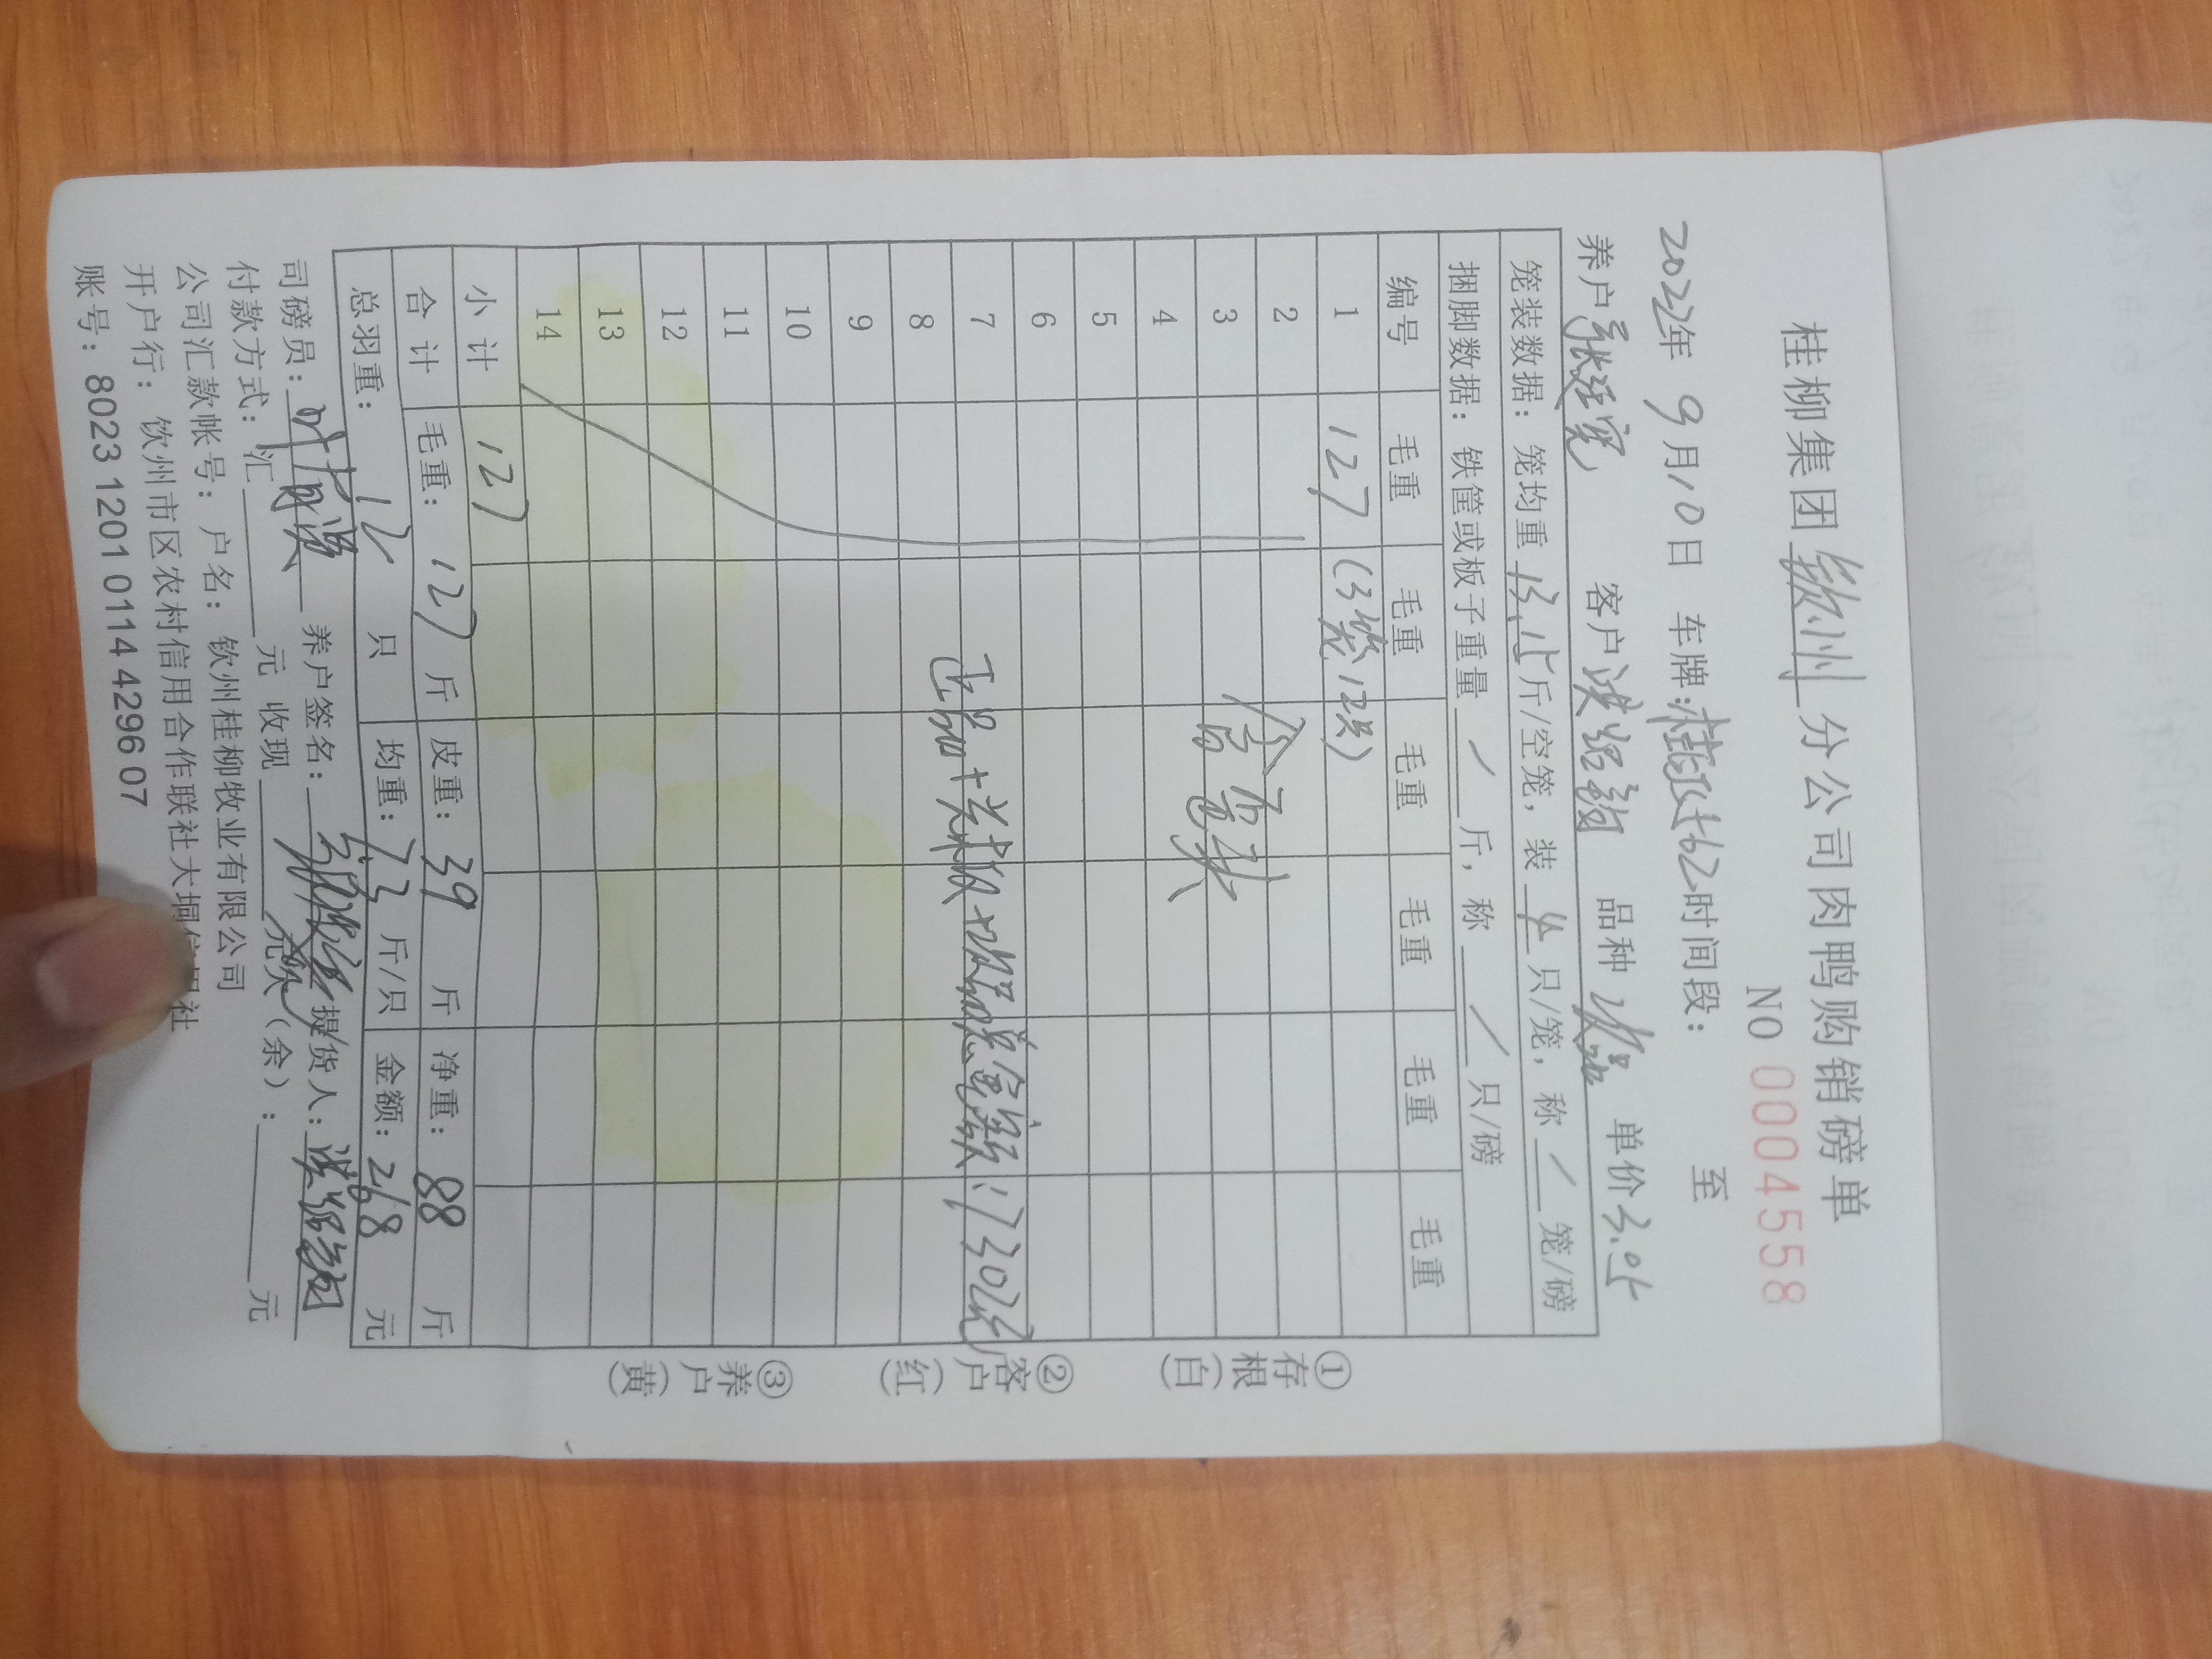 桂柳集团 钦州 分公司肉鸭购销磅单
NO 0004558
2022年 9月10日 车牌: 时间段: 至
养户 客户 品种 次品 单价 3.05
笼装数据: 笼均重 13.15 斤/空笼, 装 4 只/笼, 称 / 笼/磅
捆脚数据: 铁筐或板子重量 / 斤, 称 / 只/磅
编号 毛重 毛重 毛重 毛重 毛重 毛重
1 127 (3笼12只)
2
3
4
5
6
7 正品+次品总金额: 17302元
8
9
10
11
12
13
14
小计 127
合计 毛重: 127 斤 皮重: 39 斤 净重: 88 斤
总羽重: 12 只 均重: 7.3 斤/只 金额: 268 元
司磅员: 养户签名: 提货人:
付款方式: 汇 元 收现 元 欠(余): 元
公司汇款帐号: 户名: 钦州桂柳牧业有限公司
开户行: 钦州市区农村信用合作联社大垌信用社
账号: 8023 1201 0114 4296 07
①存根(白)
②客户(红)
③养户(黄)